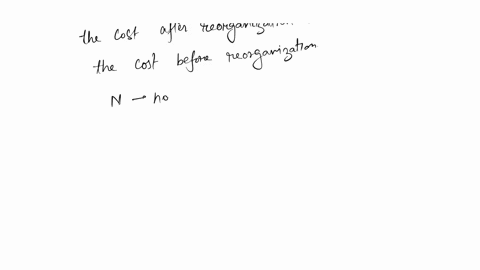 the cost after reorganization
the cost before reorganization.
N → no